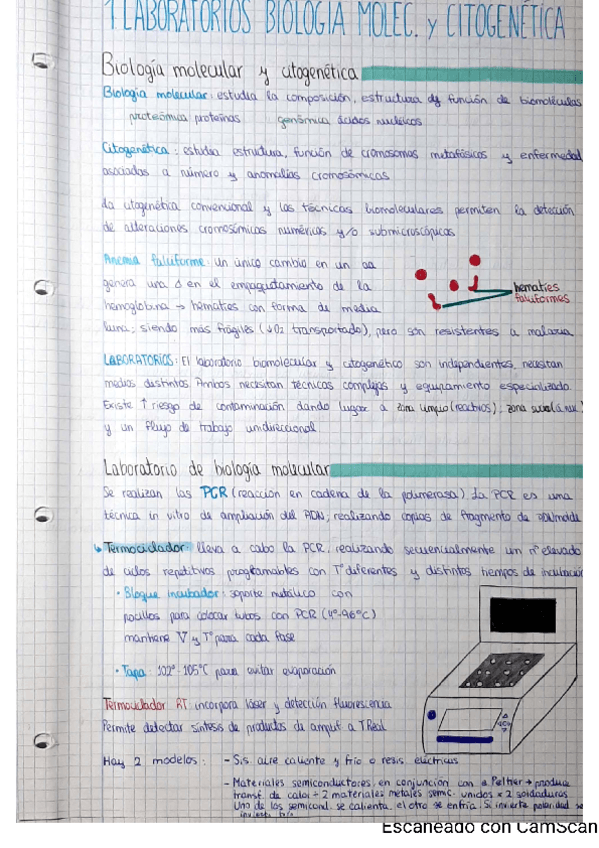 1 LABORATORIOS BIOLOGIA MOLEC. y CITOGENÉTICA
Biología molecular y citogenética
Biología molecular: estudia la composición, estructura y función de biomoléculas
proteómica proteínas genómica ácidos nucleicos
Citogenética: estudia estructura, función de cromosomas metafásicos y enfermedad
asociadas a número y anomalías cromosómicas
La citogenética convencional y las técnicas biomoleculares permiten la detección
de alteraciones cromosómicas numéricas y/o submicroscópicas
Anemia falciforme: un único cambio en un aa
genera una Δ en el empaquetamiento de la
hemoglobina → hematíes con forma de media
luna; siendo más frágiles (↓O2 transportado), pero son resistentes a malaria
hematíes
falciformes
LABORATORIOS: El laboratorio biomolecular y citogenético son independientes, necesitan
medios distintos. Ambos necesitan técnicas complejas y equipamiento especializado.
Existe ↑ riesgo de contaminación dando lugar a zona limpia (reactivos), zona sucia
y un flujo de trabajo unidireccional.
Laboratorio de biología molecular
Se realizan las PCR (reacción en cadena de la polimerasa) La PCR es una
técnica in vitro de ampliación del ADN, realizando copias de fragmento de ADN molde
Termociclador: lleva a cabo la PCR, realizando secuencialmente un nº elevado
de ciclos repetitivos programables con Tª diferentes y distintos tiempos de incubación
· Bloque incubador: soporte metálico con
pocillos para colocar tubos con PCR (4º-96ºC)
mantiene V y Tª para cada fase
· Tapa: 102º-105ºC para evitar evaporación
Termociclador RT incorpora láser y detección fluorescencia
Permite detectar síntesis de productos de amplif a T Real
Hay 2 modelos: - Sis. aire caliente y frío o resis eléctricas
- Materiales semiconductores en conjuncion con e Peltier → produce
transf. de calor ÷ 2 materiales metales semic. unidos x 2 soldaduras
Uno de los semicond. se calienta, el otro se enfría. Si invierte polaridad se
Escaneado con CamScan